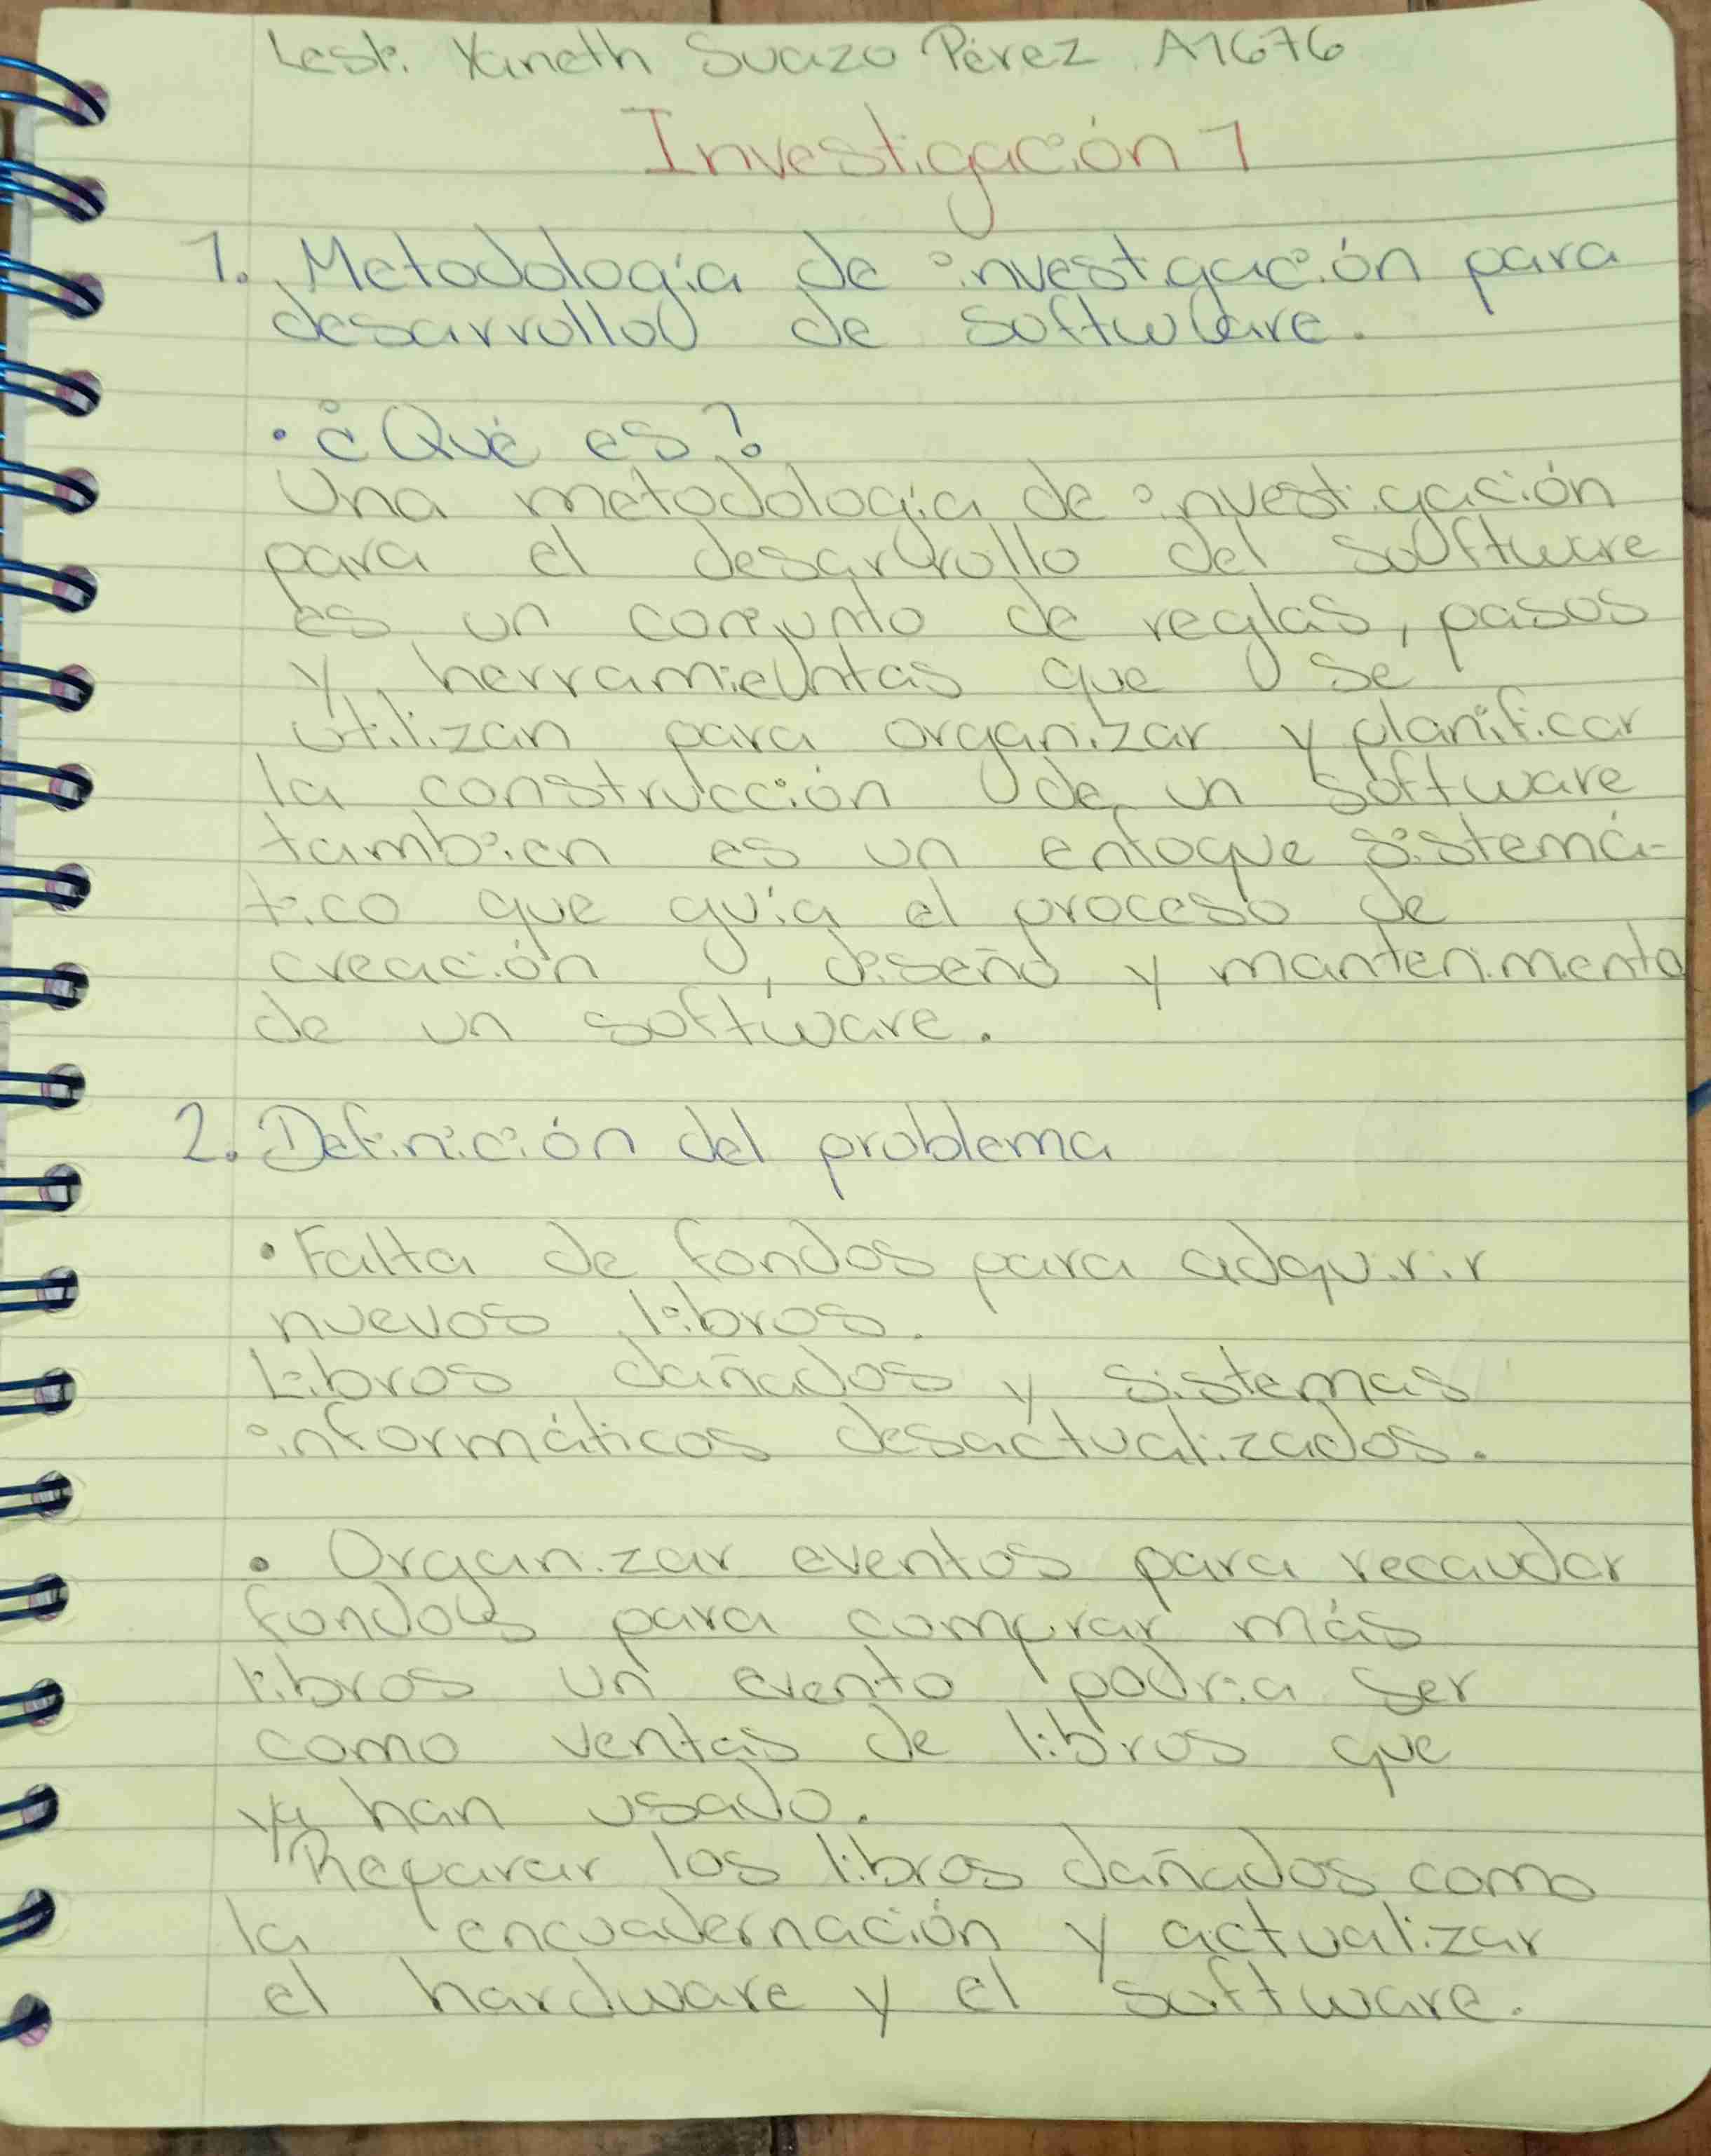 Lesli Yaneth Suazo Pérez A1676
Investigación 1
1. Metodología de investigación para
desarrollo de software.
• ¿Qué es?
Una metodología de investigación
para el desarrollo del software
es un conjunto de reglas, pasos
y herramientas que se
utilizan para organizar y planificar
la construcción de un software
tambien es un enfoque sistemá-
tico que guía el proceso de
creación, diseño y mantenimento
de un software.
2. Definición del problema
• Falta de fondos para adquirir
nuevos libros.
Libros dañados y sistemas
informáticos desactualizados.
• Organizar eventos para recaudar
fondos para comprar más
libros un evento podría ser
como ventas de libros que
ya han usado.
Reparar los libros dañados como
la encuadernación y actualizar
el hardware y el software.